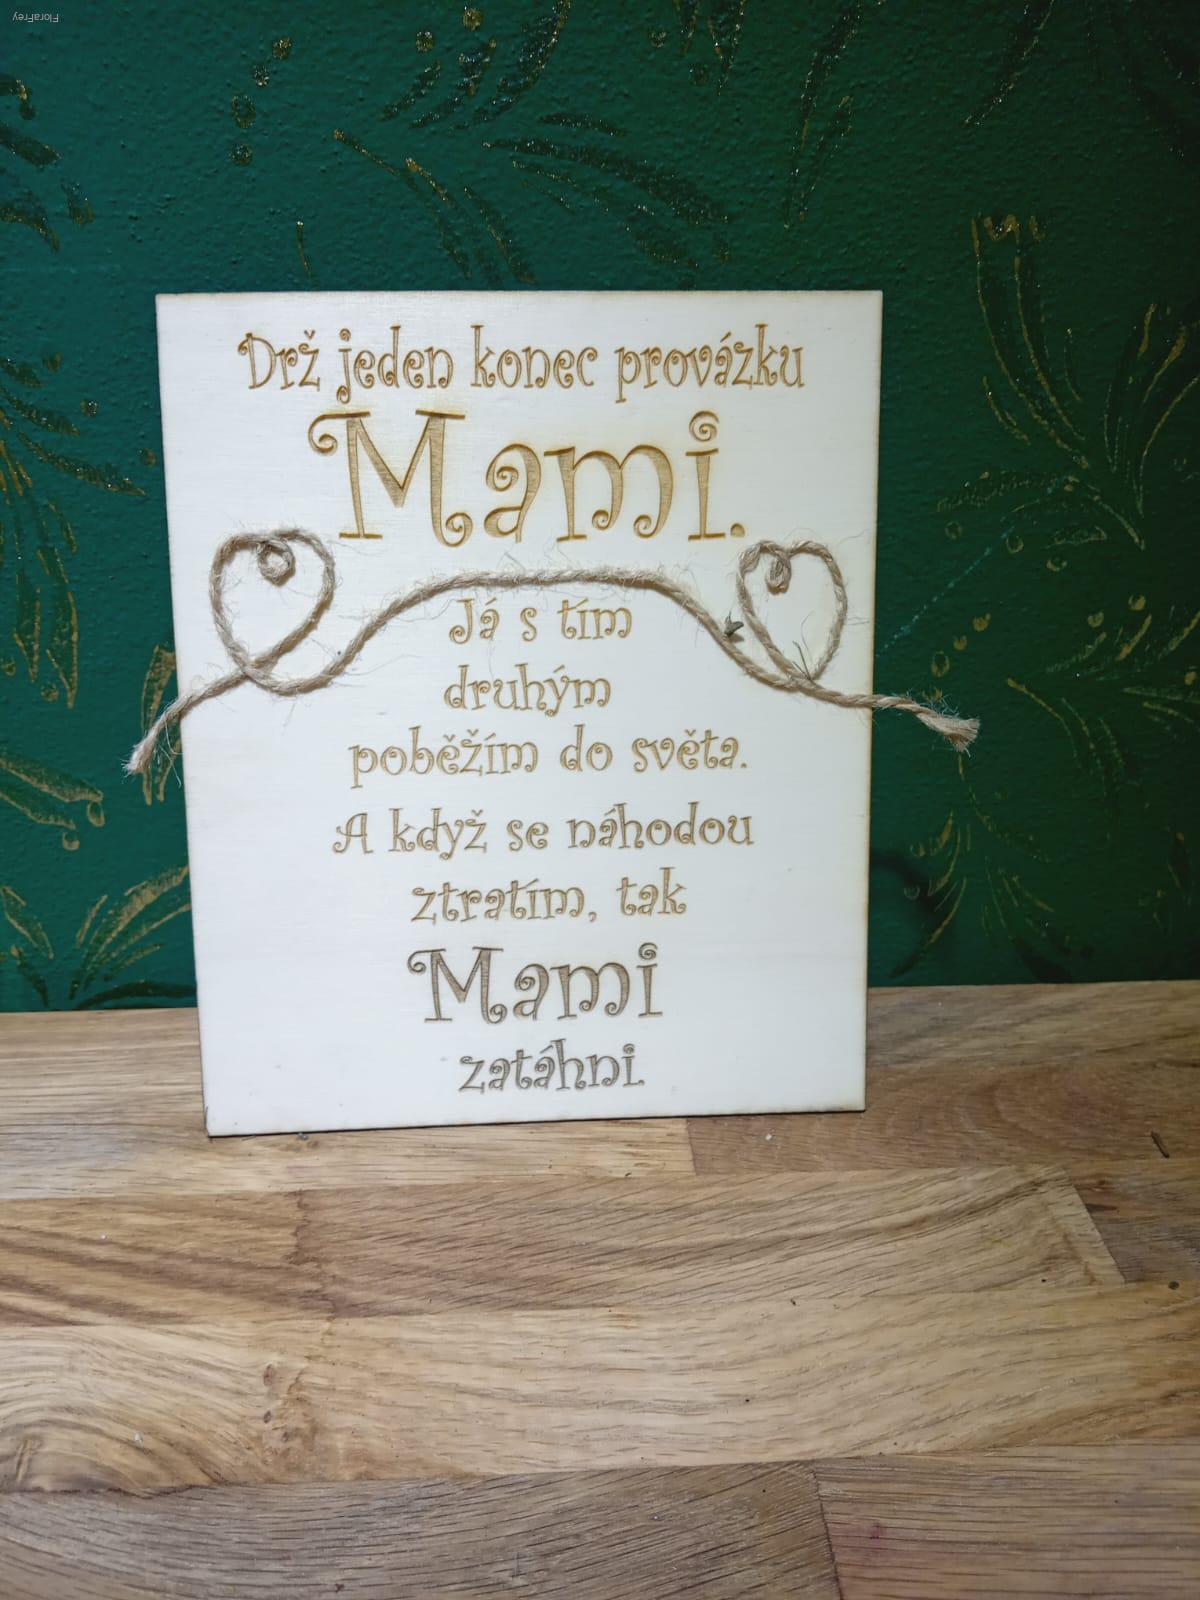 FloraFrey
Drž jeden konec provázku
Mami.
Já s tím
druhým
poběžím do světa.
A když se náhodou
ztratím, tak
Mami
zatáhni.